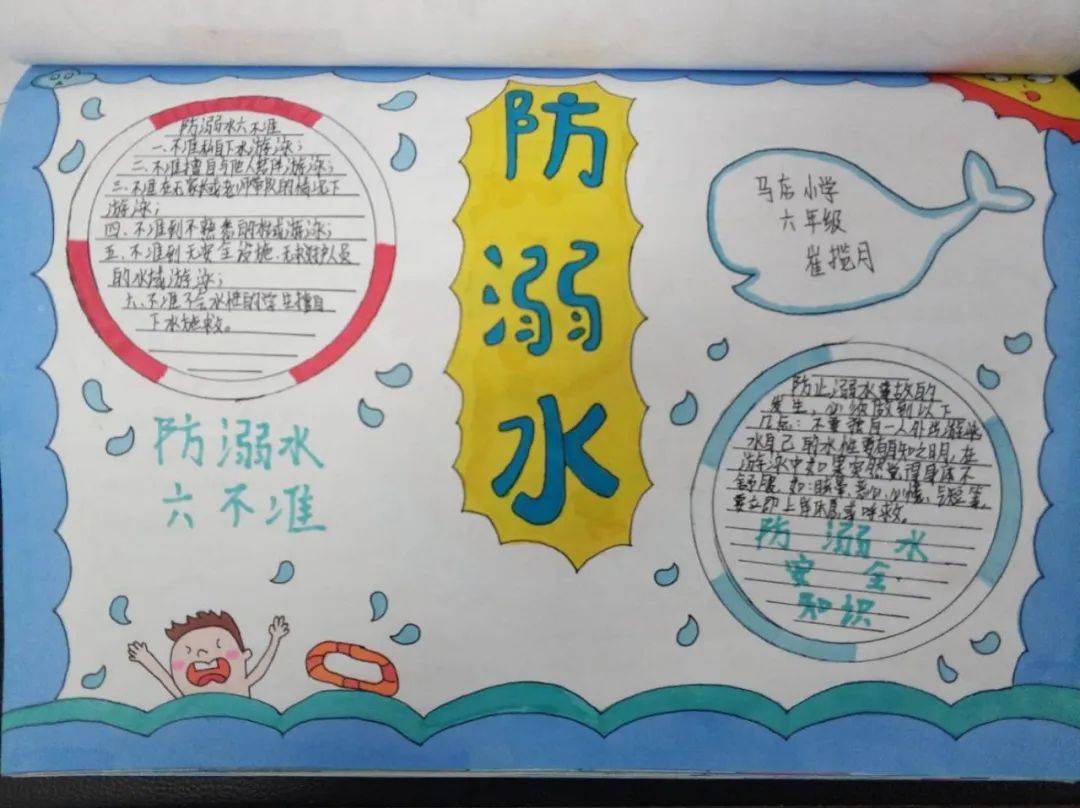 防溺水
防溺水六不准
一、不准私自下水游泳；
二、不准擅自与他人结伴游泳；
三、不准在无家长或老师带队的情况下
游泳；
四、不准到不熟悉的水域游泳；
五、不准到无安全设施、无救护人员
的水域游泳；
六、不准不会水性的学生擅自
下水施救。
防溺水
六不准
马店小学
六年级
崔揽月
防止溺水事故的
发生，必须做到以下
几点：不要独自一人外出游泳
水自己的水性要有自知之明，在
游泳中如果突然觉得身体不
舒服，如：眩晕、恶心、心慌、气短等
要立即上岸休息或呼救。
防溺水
安全
知识